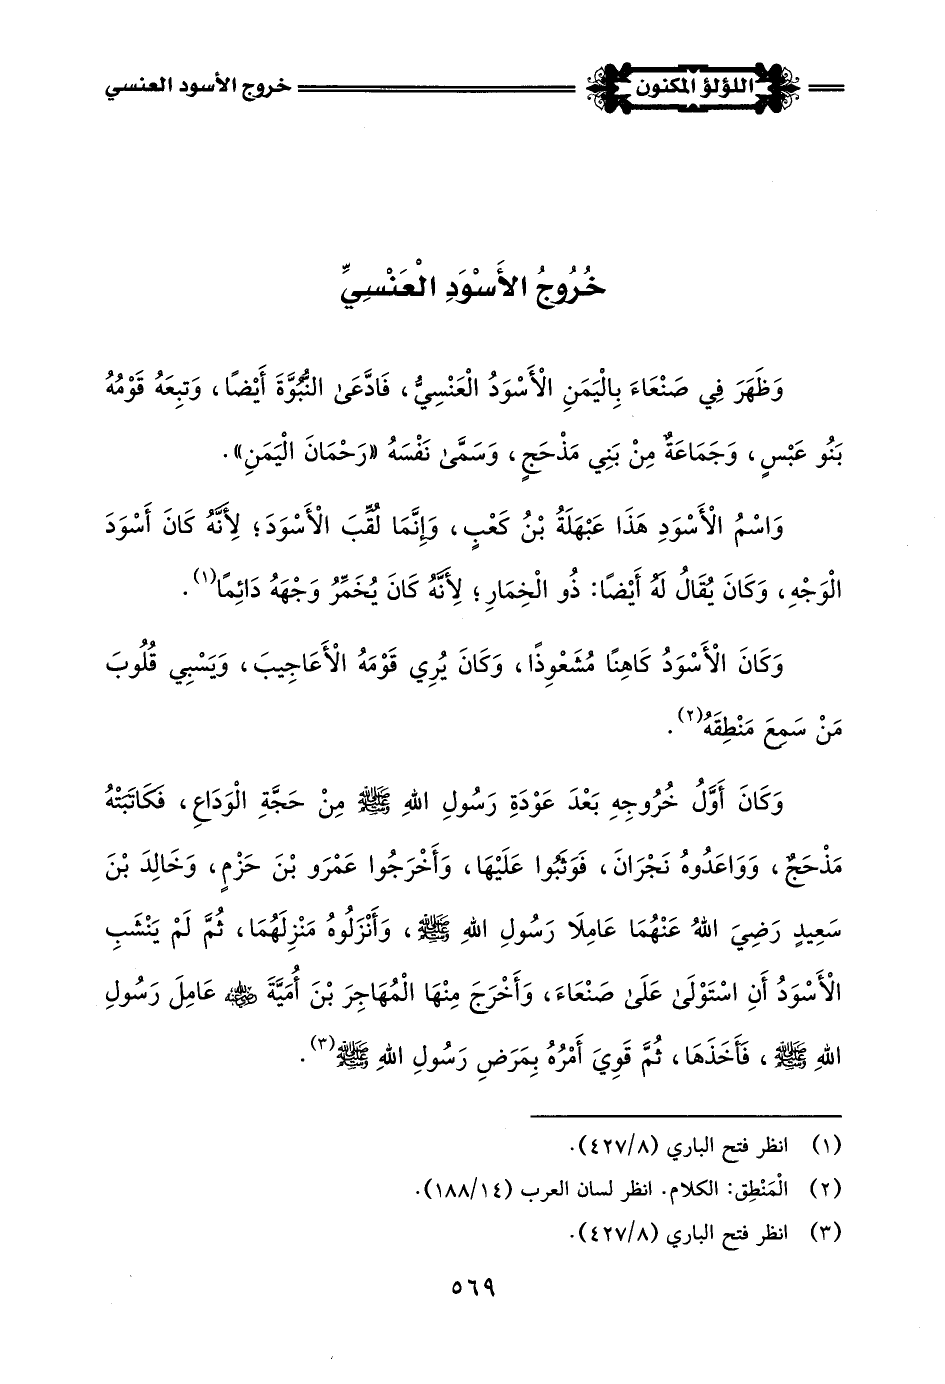 اللؤلؤ المكنون
خروج الأسود العنسي
خُرُوجُ الأَسْوَدِ الْعَنْسِيِّ
وَظَهَرَ فِي صَنْعَاءَ بِالْيَمَنِ الْأَسْوَدُ الْعَنْسِيُّ، فَادَّعَىٰ النُّبُوَّةَ أَيْضًا، وَتَبِعَهُ قَوْمُهُ
بَنُو عَبْسٍ، وَجَمَاعَةٌ مِنْ بَنِي مَذْحَجٍ، وَسَمَّىٰ نَفْسَهُ «رَحْمَانَ الْيَمَنِ».
وَاسْمُ الْأَسْوَدِ هَذَا عَبْهَلَةُ بْنُ كَعْبٍ، وَإِنَّمَا لُقِّبَ الْأَسْوَدَ؛ لِأَنَّهُ كَانَ أَسْوَدَ
الْوَجْهِ، وَكَانَ يُقَالُ لَهُ أَيْضًا: ذُو الْخِمَارِ؛ لِأَنَّهُ كَانَ يُخَمِّرُ وَجْهَهُ دَائِمًا(١).
وَكَانَ الْأَسْوَدُ كَاهِنًا مُشَعْوِذًا، وَكَانَ يُرِي قَوْمَهُ الْأَعَاجِيبَ، وَيَسْبِي قُلُوبَ
مَنْ سَمِعَ مَنْطِقَهُ(٢).
وَكَانَ أَوَّلُ خُرُوجِهِ بَعْدَ عَوْدَةِ رَسُولِ اللهِ ﷺ مِنْ حَجَّةِ الْوَدَاعِ، فَكَاتَبَتْهُ
مَذْحَجٌ، وَوَاعَدُوهُ نَجْرَانَ، فَوَثَبُوا عَلَيْهَا، وَأَخْرَجُوا عَمْرَو بْنَ حَزْمٍ، وَخَالِدَ بْنَ
سَعِيدٍ رَضِيَ اللهُ عَنْهُمَا عَامِلَا رَسُولِ اللهِ ﷺ، وَأَنْزَلُوهُ مَنْزِلَهُمَا، ثُمَّ لَمْ يَنْشَبِ
الْأَسْوَدُ أَنِ اسْتَوْلَىٰ عَلَىٰ صَنْعَاءَ، وَأَخْرَجَ مِنْهَا الْمُهَاجِرَ بْنَ أُمَيَّةَ رضي الله عنه عَامِلَ رَسُولِ
اللهِ ﷺ، فَأَخَذَهَا، ثُمَّ قَوِيَ أَمْرُهُ بِمَرَضِ رَسُولِ اللهِ ﷺ(٣).
(١) انظر فتح الباري (٤٢٧/٨).
(٢) الْمَنْطِق: الكلام. انظر لسان العرب (١٨٨/١٤).
(٣) انظر فتح الباري (٤٢٧/٨).
٥٦٩